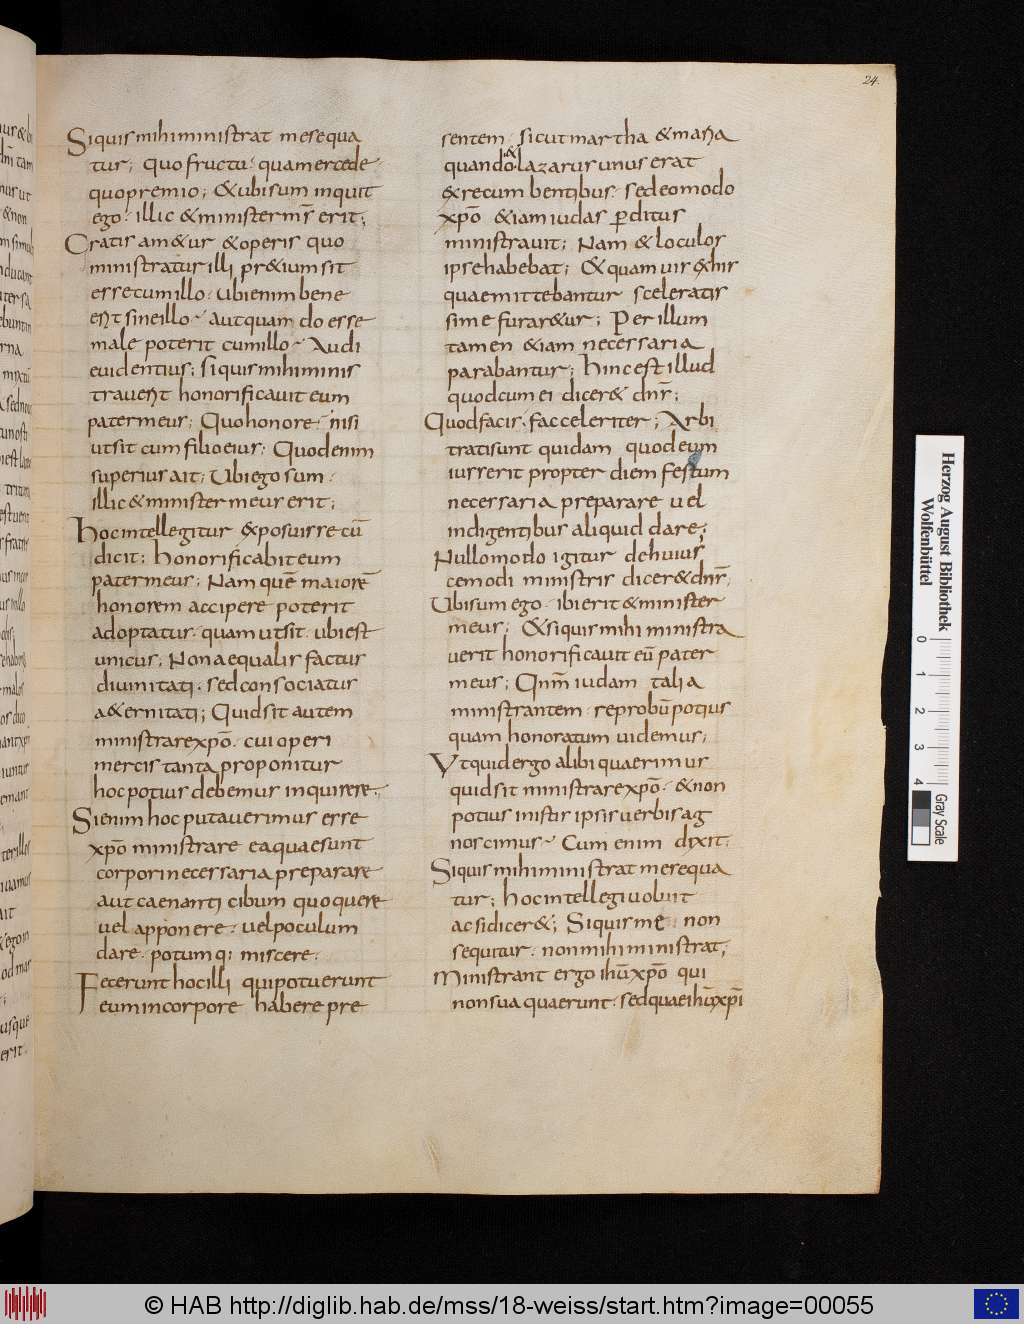 24.
Siquis mihi ministrat me sequa
tur; quo fructu· qua mercede·
quo premio; & ubi sum inquit
ego· illic & minister mr̄ erit;
Gratis am&ur & operis quo
ministratur illi pr&ium sit
esse cum illo· Ubi enim bene
erit sine illo· aut quam do esse
male poterit cum illo· Audi
euidentius; siquis mihi minis
trauerit honorificauit eum
pater meus; Quo honore· nisi
ut sit cum filio eius; Quod enim
superius ait; Ubi ego sum·
illic & minister meus erit;
Hoc intellegitur exposuisse cū
dicit; honorificabit eum
pater meus; Nam quē maiorē
honorem accipere poterit
adoptatus· quam ut sit· ubi est
unicus; Non aequalis factus
diuinitati· sed consociatus
a&ernitati; Quid sit autem
ministrare xpō· cui operi
mercis tanta proponitur
hoc potius debemus inquirere;
Si enim hoc putauerimus esse
xpō ministrare ea quae sunt
corpori necessaria preparare
aut caenanti cibum quoquere
uel apponere· uel poculum
dare· potumq; miscere·
Fecerunt hoc illi qui potuerunt
eum in corpore habere pre
sentem· sicut martha & maria
quando· & lazarus unus erat
ex recumbentibus· sed eo modo
xpō &iam iudas p̱ditus
ministrauit; Nam & loculos
ipse habebat; & quamuis ex his
quae mittebantur sceleratis
sime furar&ur; Per illum
tamen &iam necessaria
parabantur; hinc est illud
quod cum ei dicer& dnr̄;
Quod facis· fac celeriter; Arbi
trati sunt quidam quod eum
iusserit propter diem festum
necessaria preparare uel
indigentibus aliquid dare;
Nullo modo igitur de huius
cemodi ministris dicer& dnr̄;
Ubi sum ego· ibi erit & minister
meus; & siquis mihi ministra
uerit honorificauit eū pater
meus; Qnm̄ iudam talia
ministrantem· reprobū potius
quam honoratum uidemus;
Ut quid ergo alibi quaerimus
quid sit ministrare xpō· & non
potius in istis ipsis uerbis ag
noscimus· Cum enim dixit·
Siquis mihi ministrat me sequa
tur; hoc intellegi uoluit
ac si dicer&; Siquis me non
sequitur· non mihi ministrat;
Ministrant ergo ihū xpō qui
non sua quaerunt· sed quae ihū xpī
Herzog August Bibliothek
Wolfenbüttel
0 1 2 3 4
Gray Scale
© HAB http://diglib.hab.de/mss/18-weiss/start.htm?image=00055